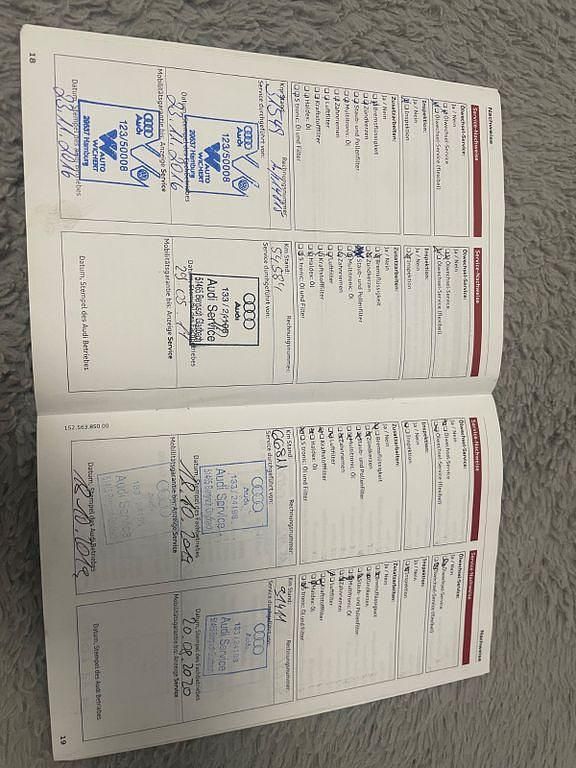 Nachweise
Service-Nachweise
Ölwechsel-Service:
Ja / Nein
Ölwechsel-Service
Ölwechsel-Service (flexibel)
Inspektion:
Ja / Nein
Inspektion
Zusatzarbeiten:
Ja / Nein
Bremsflüssigkeit
Zündkerzen
Staub- und Pollenfilter
Multitronic: Öl
Zahnriemen
Luftfilter
Kraftstofffilter
Haldex: Öl
S tronic: Öl und Filter
Km Stand:
Rechnungsnummer:
Service durchgeführt von:
Audi
123/50008
AUTO
WICHERT
Hamburg
23.11.2016
Mobilitätsgarantie bis: Anzeige Service
Audi
123/50008
AUTO
WICHERT
Hamburg
23.11.2016
18
Service-Nachweise
Ölwechsel-Service:
Ja / Nein
Ölwechsel-Service
Ölwechsel-Service (flexibel)
Inspektion:
Ja / Nein
Inspektion
Zusatzarbeiten:
Ja / Nein
Bremsflüssigkeit
Zündkerzen
Staub- und Pollenfilter
Multitronic: Öl
Zahnriemen
Luftfilter
Kraftstofffilter
Haldex: Öl
S tronic: Öl und Filter
Km Stand:
Rechnungsnummer:
Service durchgeführt von:
Audi
Audi Service
51465 Bergisch Gladbach
Mobilitätsgarantie bis: Anzeige Service
Datum, Stempel des Audi Betriebes
152.563.850.00
Service-Nachweise
Ölwechsel-Service:
Ja / Nein
Ölwechsel-Service
Ölwechsel-Service (flexibel)
Inspektion:
Ja / Nein
Inspektion
Zusatzarbeiten:
Ja / Nein
Bremsflüssigkeit
Zündkerzen
Staub- und Pollenfilter
Multitronic: Öl
Zahnriemen
Luftfilter
Kraftstofffilter
Haldex: Öl
S tronic: Öl und Filter
Km Stand
Rechnungsnummer:
Service durchgeführt von:
Audi
133 / 24198
Audi Service
Datum, Stempel des Fachbetriebes
Mobilitätsgarantie bis: Anzeige Service
Audi Service
Datum, Stempel des Audi Betriebes
Nachweise
Service-Nachweise
Ölwechsel-Service:
Ja / Nein
Ölwechsel-Service
Ölwechsel-Service (flexibel)
Inspektion:
Ja / Nein
Inspektion
Zusatzarbeiten:
Ja / Nein
Bremsflüssigkeit
Zündkerzen
Staub- und Pollenfilter
Multitronic: Öl
Zahnriemen
Luftfilter
Kraftstofffilter
Haldex: Öl
S tronic: Öl und Filter
Km Stand:
Rechnungsnummer:
Service durchgeführt von:
Audi
133 / 24198
Audi Service
Datum, Stempel des Fachbetriebes
Mobilitätsgarantie bis: Anzeige Service
Datum, Stempel des Audi Betriebes
19